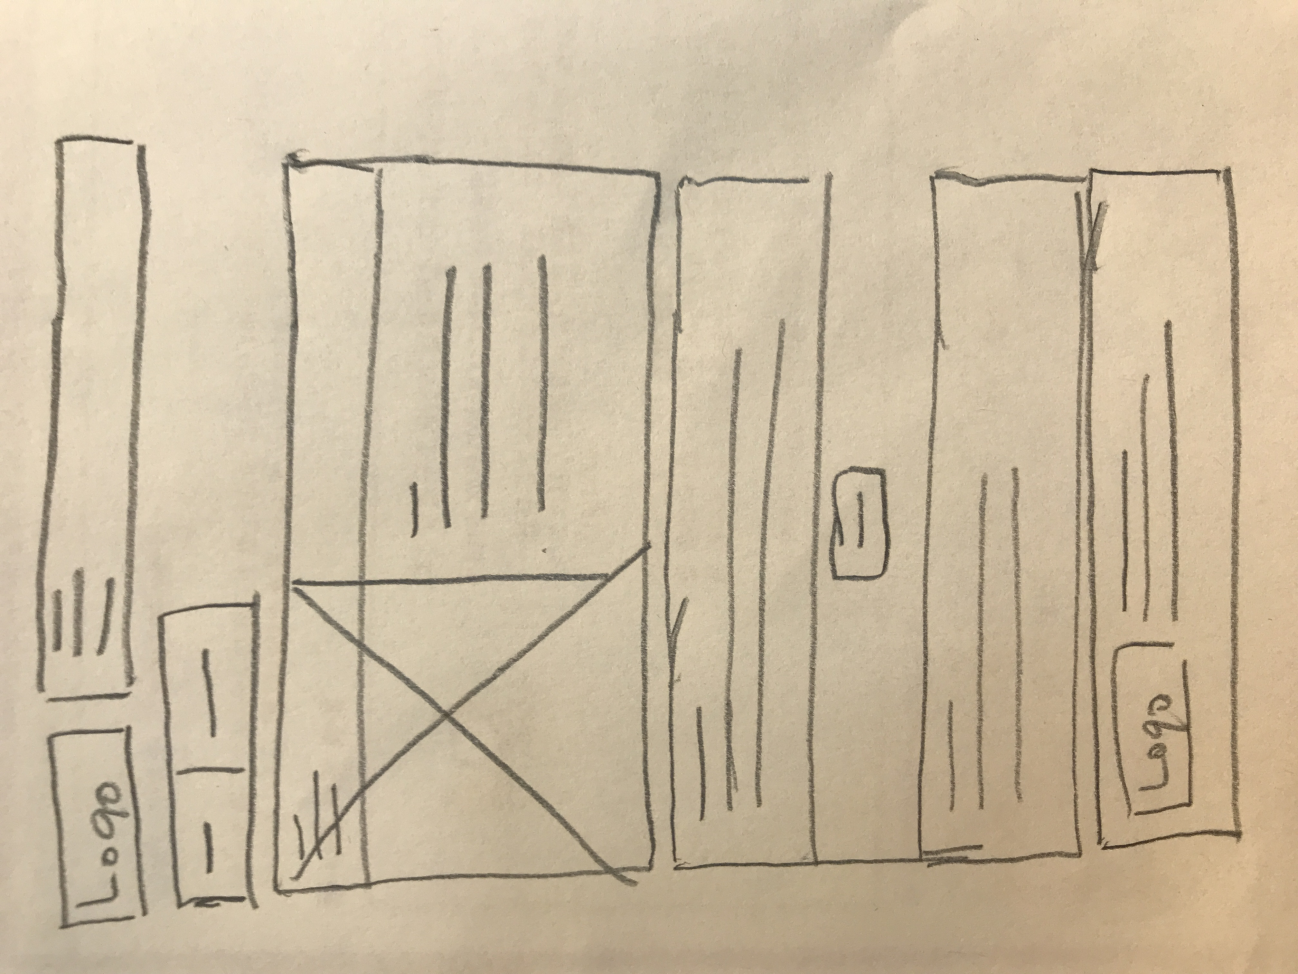 Logo
Logo